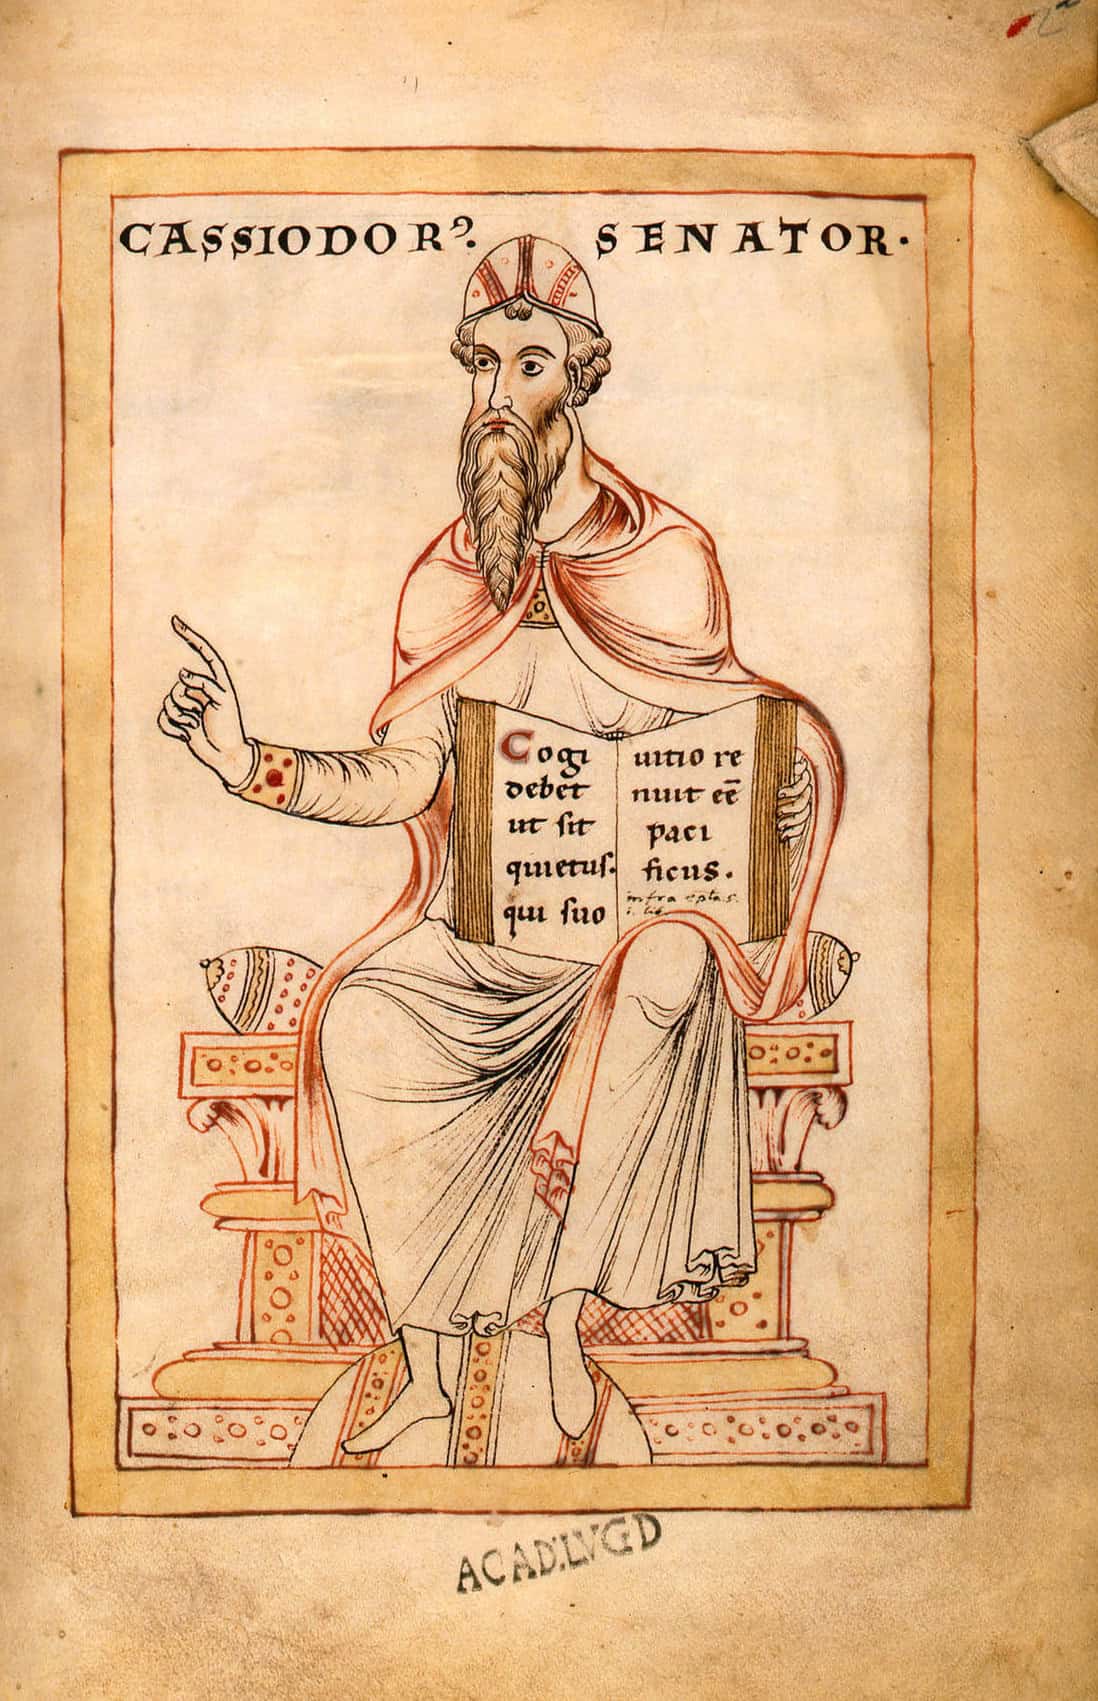 CASSIODORꝰ. SENATOR.
Cogi
debet
ut sit
quietus.
qui suo
uitio re
nuit eē̄
paci
ficus.
infra
i. lib
ACAD.LVGD